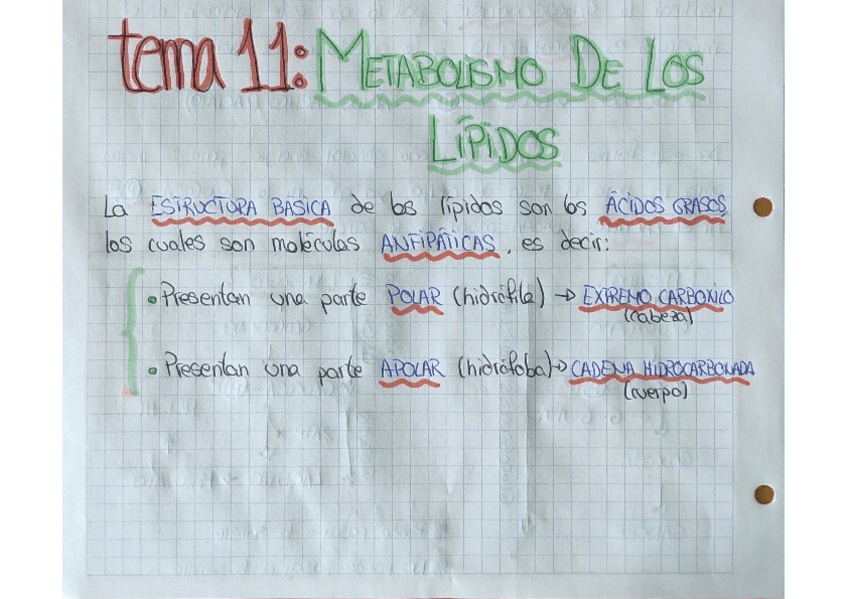 tema 11: METABOLISMO DE LOS
LÍPIDOS
La ESTRUCTURA BÁSICA de los lípidos son los ÁCIDOS GRASOS,
los cuales son moléculas ANFIPÁTICAS, es decir:
• Presentan una parte POLAR (hidrófila) → EXTREMO CARBOXILO
(cabeza)
• Presentan una parte APOLAR (hidrófoba) → CADENA HIDROCARBONADA
(cuerpo)